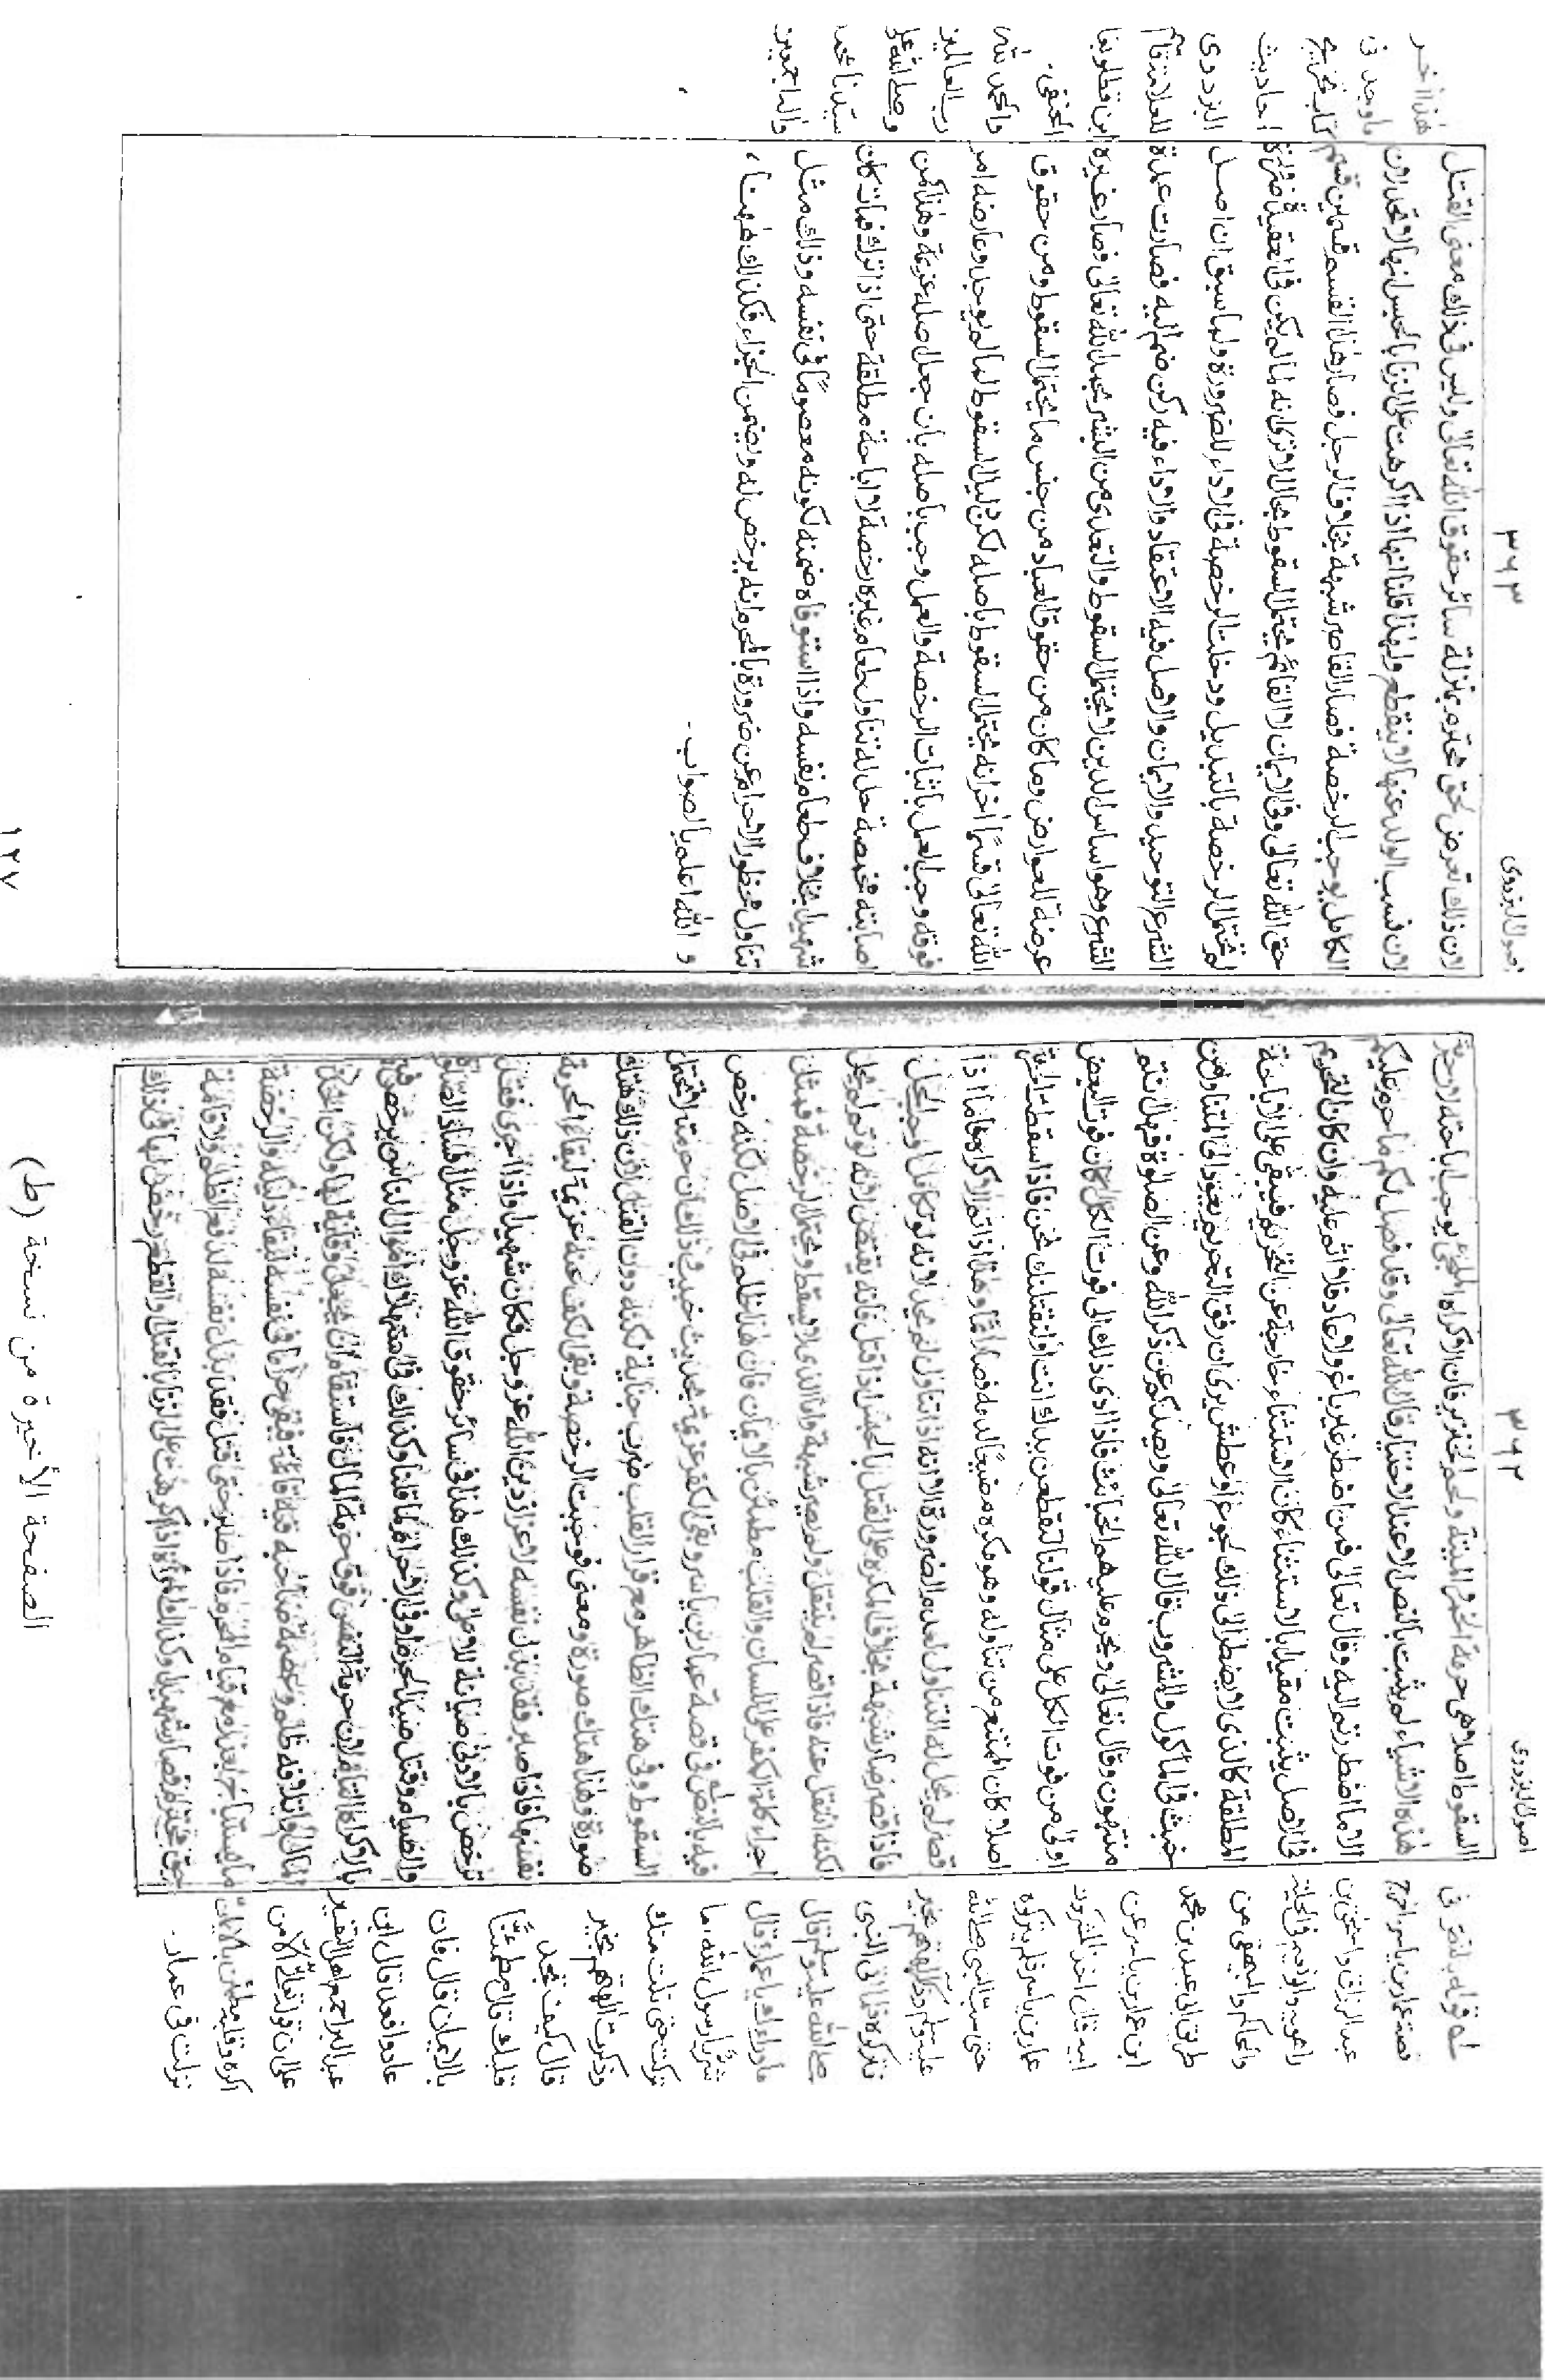 اصول البزدوى
٣٦٢
السقوط اصلا هى حرمة الخمر والميتة ولحم الخنزير فان الاكراه الملجئ يوجب اباحته لان حرمة
هذه الاشياء لم يثبت بالنص الا عند الاختيار قال الله تعالى وقد فصل لكم ما حرم عليكم
الا ما اضطررتم اليه وقال تعالى فمن اضطر غير باغ ولا عاد فلا اثم عليه وان كان التحريم
فى الاصل يثبت مقيدا بالاستثناء كان الاستثناء خارجة عن التحريم فيبقى على الاباحة
المطلقة كالذى لا يضطر الى ذلك لجوع او عطش يرى ان رفق التحريم يعود الى المتناول من
خبث فى المأكول والمشروب قال الله تعالى ويصدكم عن ذكر الله وعن الصلوة فهل انتم
منتهون وقال تعالى ويحرم عليهم الخبائث فاذا ادى ذلك الى فوت الكل كان فوت البعض
اولى من فوت الكل على مثال قولنا لتقطعن يدك انت او لنقتلنك نحن فاذا سقطت الحرمة
اصلا كان الممتنع من تناوله وهو مكره مضيعا لدمه فصار اثما وهذا اذا تم الاكراه فاما اذا
قصر لم يحل له التناول لعدم الضرورة الا انه اذا تناول لم يحد لانه لو تكامل اوجب الحل
فاذا قصر صار شبهة بخلاف المكره على القتل بالحبس اذا قتل فانه يقتص لانه لو تم لم يحل
لكنه انتقل عنه فاذا قصر لم ينتقل ولم يصر شبهة واما الذى لا يسقط ويحتمل الرخصة فمثل
اجراء كلمة الكفر على اللسان والقلب مطمئن بالايمان فان هذا ظلم فى الاصل لكنه رخص
فيه بالنص فى قصة عمار بن ياسر وبقى الكفر عزيمة بحديث خبيب وذلك ان حرمته لا تحتمل
السقوط وفى هتك الظاهر مع قرار القلب ضرب جناية لكنه دون القتل لان ذلك هتك
صورة وهذا هتك صورة ومعنى فوجبت الرخصة وبقى الكف عنه عزيمة لبقاء الحرمة
نفسها فاذا صبر فقد بذل نفسه لاعزاز دين الله عز وجل فكان شهيدا واذا اجرى فقد
ترخص بالادنى صيانة للاعلى وكذلك هذا فى سائر حقوق الله عز وجل مثل افساد الصلوة
والصيام وقتل صيد الحرم او فى الاحرام لما قلنا وكذلك فى استهلاك اموال الناس يرخص فيه
بالاكراه التام لان حرمة النفس فوق حرمة المال فاستقام ان يجعل وقاية لها ولكن اخذ
المال واتلافه ظلم وعصمة صاحبه فيه قائمة فبقى حراما فى نفسه لبقاء دليله والرخصة
ما يستباح بعذر مع قيام المحرم فاذا صبر حتى قتل فقد بذل نفسه لدفع الظلم ولاقامة
حق محترم فصار شهيدا وكذلك المرأة اذا اكرهت على الزنا بالقتل والقطع رخص لها فى ذلك
له قوله بالنص فى
قصة عمار بن ياسر اخرج
عبد الرزاق واسحق بن
راهويه وابو نعيم فى الحلية
والحاكم والبيهقى من
طريق ابى عبيد بن محمد
ابن عمار بن ياسر عن
ابيه قال اخذ المشركون
عمار بن ياسر فلم يتركوه
حتى سب النبى صلى الله
عليه وسلم وذكر الهتهم بخير
ثم تركوه فلما اتى النبى
صلى الله عليه وسلم قال
ما وراءك يا عمار قال
شر يا رسول الله ما
تركت حتى نلت منك
وذكرت الهتهم بخير
قال كيف تجد
قلبك قال مطمئنا
بالايمان قال فان
عادوا فعد قال ابن
عبد البر اجمع اهل التفسير
على ان قوله تعالى الا من
اكره وقلبه مطمئن بالايمان
نزلت فى عمار -
اصول البزدوى
٣٦٣
لان ذلك تعرض لحق محترم بمنزلة سائر حقوق الله تعالى وليس فى ذلك معنى القتل
لان نسب الولد عنها لا ينقطع ولهذا قلنا انها اذا اكرهت على الزنا بالحبس انها لا تحد لان
الكامل يوجب الرخصة فصار القاصر شبهة بخلاف الرجل وصار هذا القسم قسمين قسم
حق الله تعالى وفى الايمان لا القائم يحتمل السقوط بحال الا ترى انه لما لم يكن فى العقيدة ضرورة
لم تحتمل الرخصة بالتبديل ودخلت الرخصة فى الاداء للضرورة ولما سبق ان اصل
الشرع التوحيد والايمان والاصل فيه الاعتقاد والاداء فيه ركن ضم اليه فصارت عمدة
الشرع وهو اساس الدين لا يحتمل السقوط والتعدى من البشر بحمد الله تعالى وصار غيره
عرضة للعوارض وما كان من حقوق العباد من جنس ما يحتمل السقوط ومن حقوق
الله تعالى قسما اخر انه يحتمل السقوط باصله لكن دليل السقوط لما لم يوجد وعارضه امر
فوقه وجب العمل باثبات الرخصة والعمل وجب باصله بان جعل اصله عزيمة وهذا كمن
اصابته مخمصة حل له تناول طعام غيره رخصة لا اباحة مطلقة حتى اذا ترك فمات كان
شهيدا بخلاف طعام نفسه واذا استوفاه ضمنه لكونه معصوما فى نفسه وذلك مثل
تناول محظور الاحرام عن ضرورة بالمحرم انه يرخص له ويضمن الجزاء فكذلك ههنا،
و الله اعلم بالصواب -
هذا اخر
ما وجد فى
كتاب تخريج
احاديث
البزدوى
للعلامة قاسم
ابن قطلوبغا
الحنفى -
والحمد لله
رب العالمين
وصلى الله على
سيدنا محمد
واله اجمعين
١٢٧
الصفحة الأخيرة من نسخة (ط)